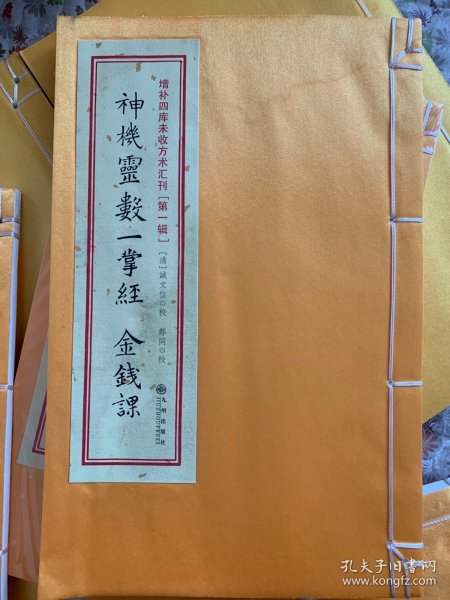 增补四库未收方术汇刊[第一辑]
神機靈數一掌經 金錢課
[清]誠文信◎校 鄭同◎校
九州出版社
JIUZHOUPRESS
孔夫子旧书网
www.kongfz.com